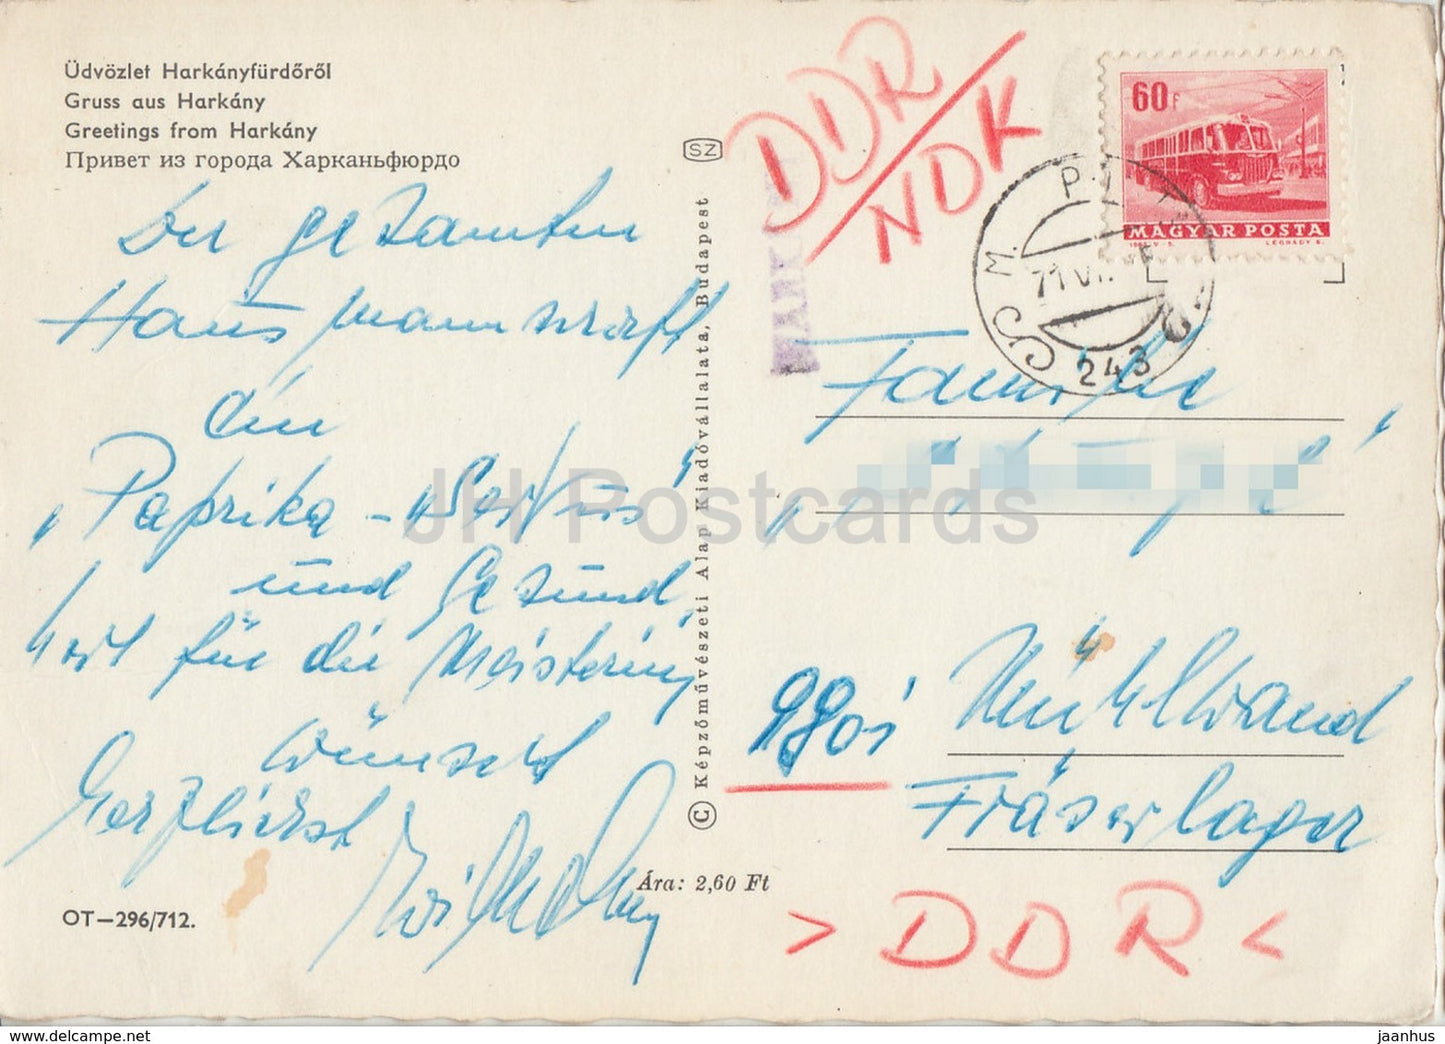 Üdvözlet Harkányfürdőről
Gruss aus Harkány
Greetings from Harkány
Привет из города Харканьфюрдо
Der gesamten
Hausmannschaft
ein
„Paprika - Servus“
und Gesund,
heit für die Meisterin,
wünscht
herzlichst
OT—296/712.
SZ
© Képzőművészeti Alap Kiadóvállalata, Budapest
Ára: 2,60 Ft
DDR
NDK
60 f
MAGYAR POSTA
LÉGRÁDY S.
71 VI.
243
Familie
9901 Mühlwand
Fräserlager
> DDR <
JH Postcards
www.delcampe.net
jaanhus